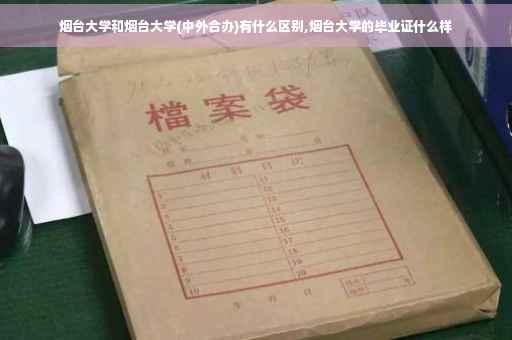 烟台大学和烟台大学(中外合办)有什么区别,烟台大学的毕业证什么样
檔案袋
材料目次
1 11
2 12
3 13
4 14
5 15
6 16
7 17
8 18
9 19
10 20
年 月 日